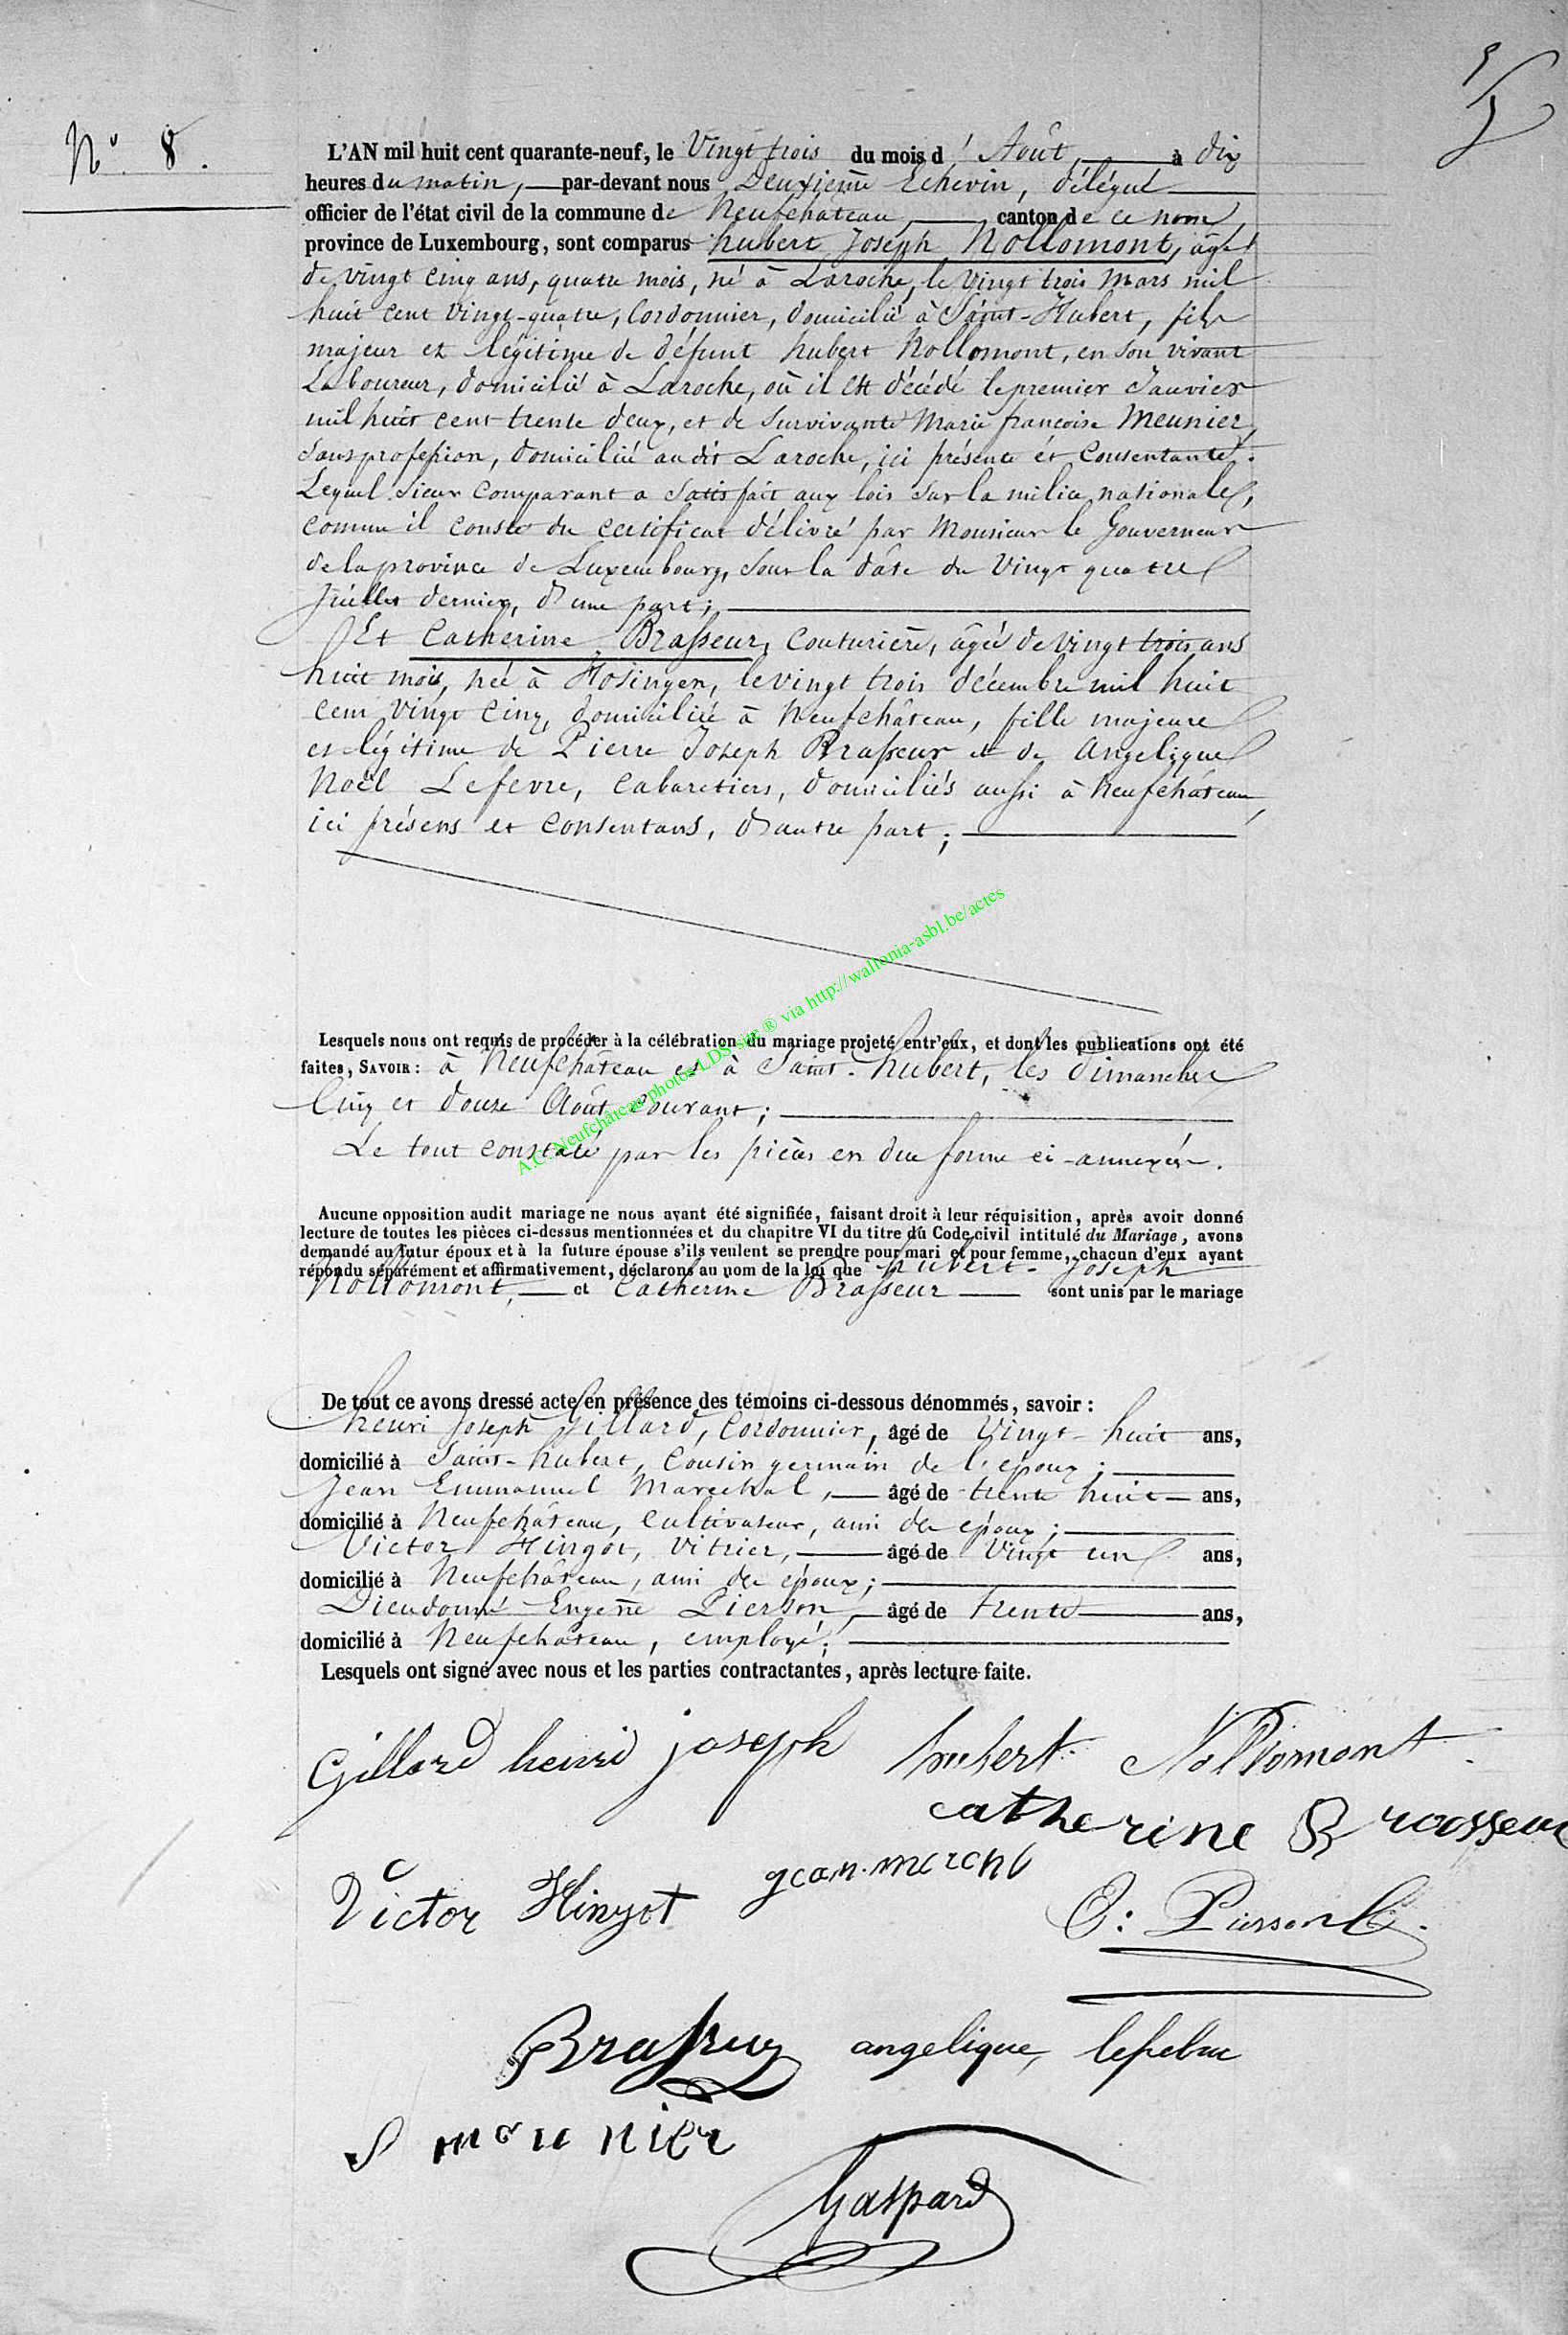 N° 8.
L'AN mil huit cent quarante-neuf, le Vingt trois du mois d'Août, à dix
heures du matin, par-devant nous Deuxième Echevin, délégué
officier de l'état civil de la commune de Neufchateau, canton de ce nom
province de Luxembourg, sont comparus hubert Joseph Nollomont, âgé
de vingt cinq ans, quatre mois, né à Laroche, le vingt trois Mars mil
huit cent vingt-quatre, Cordonnier, domicilié à Saint-Hubert, fils
majeur et légitime de défunt hubert Nollomont, en son vivant
Laboureur, domicilié à Laroche, où il est décédé le premier Janvier
mil huit cent trente deux, et de survivante Marie françoise Meunier,
sans profession, domiciliée audit Laroche, ici présente et Consentante.
Lequel sieur Comparant a satisfait aux lois sur la milice nationale,
comme il conste du certificat délivré par Monsieur le Gouverneur
de la province de Luxembourg, sous la dâte du Vingt quatre
Juillet dernier, d'une part;
Et Catherine Brasseur, Couturière, âgée de vingt trois ans
huit mois, née à Hosingen, le vingt trois décembre mil huit
cent vingt cinq, domiciliée à Neufchâteau, fille majeure
et légitime de Pierre Joseph Brasseur et de Angelique
Noël Lefevre, Cabaretiers, domiciliés aussi à Neufchâteau,
ici présens et Consentans, d'autre part;
Lesquels nous ont requis de procéder à la célébration du mariage projeté entr'eux, et dont les publications ont été
faites, SAVOIR: à Neufchâteau et à Saint-hubert, les dimanches
Cinq et douze Août Courant;
Le tout constaté par les pièces en due forme ci-annexées.
A.C. Neufchâteau photos LDS site ® via http://wallonia-asbl.be/actes
Aucune opposition audit mariage ne nous ayant été signifiée, faisant droit à leur réquisition, après avoir donné
lecture de toutes les pièces ci-dessus mentionnées et du chapitre VI du titre du Code civil intitulé du Mariage, avons
demandé au futur époux et à la future épouse s'ils veulent se prendre pour mari et pour femme, chacun d'eux ayant
répondu séparément et affirmativement, déclarons au nom de la loi que hubert-Joseph
Nollomont, et Catherine Brasseur sont unis par le mariage
De tout ce avons dressé acte en présence des témoins ci-dessous dénommés, savoir:
henri Joseph Gillard, Cordonnier, âgé de Vingt-huit ans,
domicilié à Saint-hubert, Cousin germain de l'époux;
Jean Emmanuel Marechal, âgé de trente huit ans,
domicilié à Neufchâteau, Cultivateur, ami des époux;
Victor Hingot, Vitrier, âgé de Vingt un ans,
domicilié à Neufchâteau, ami des époux;
Dieudonné Eugene Pierson, âgé de trente ans,
domicilié à Neufchâteau, employé;
Lesquels ont signé avec nous et les parties contractantes, après lecture faite.
Gillard henri joseph hubert Nollomont
catherine Brasseur
Victor Hingot E: Pierson
Brasseur angelique lefebvre
Gaspard